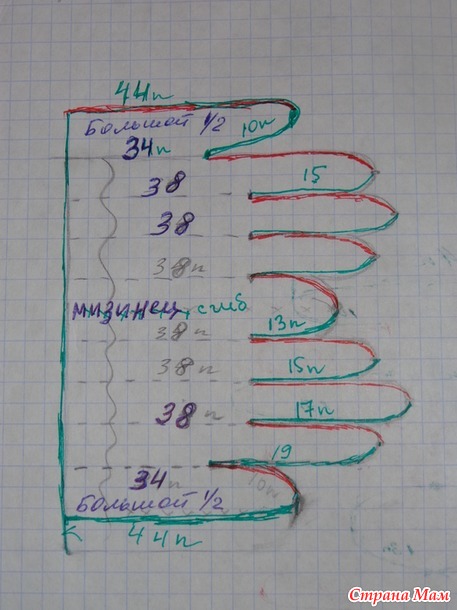 44п
Большой 1/2
10п
34п
38
15
38
38п
мизинец сгиб
13п
38п
38п
15п
38
17п
19
34п
10п
Большой 1/2
44п
Страна Мам